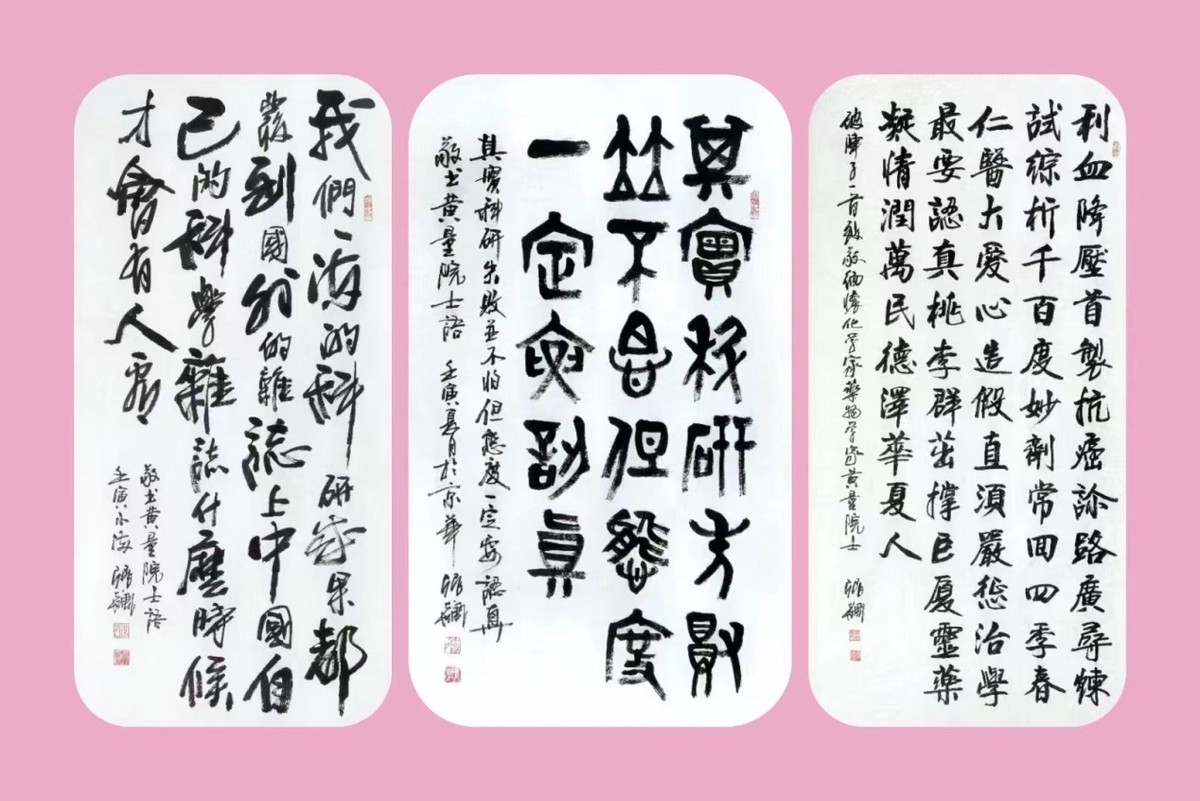 我們一流的科研成果都
發到國外的雜誌上中國自
己的科學雜誌什麼時候
才會有人看
敬書黃量院士語
壬寅小滿
其實科研失敗
竝不怕但態度
一定要認真
其實科研失敗並不怕但態度一定要認真
敬書黃量院士語 壬寅夏月於京華
利血降壓首製抗癌診路廣尋練
試綜析千百度妙劑常回四季春
仁醫大愛心造假直須嚴懲治學
最要認真桃李群茁撐巨廈靈藥
凝情潤萬民德澤華夏人
破陣子一首敬緬懷化學家藥物學家黃量院士